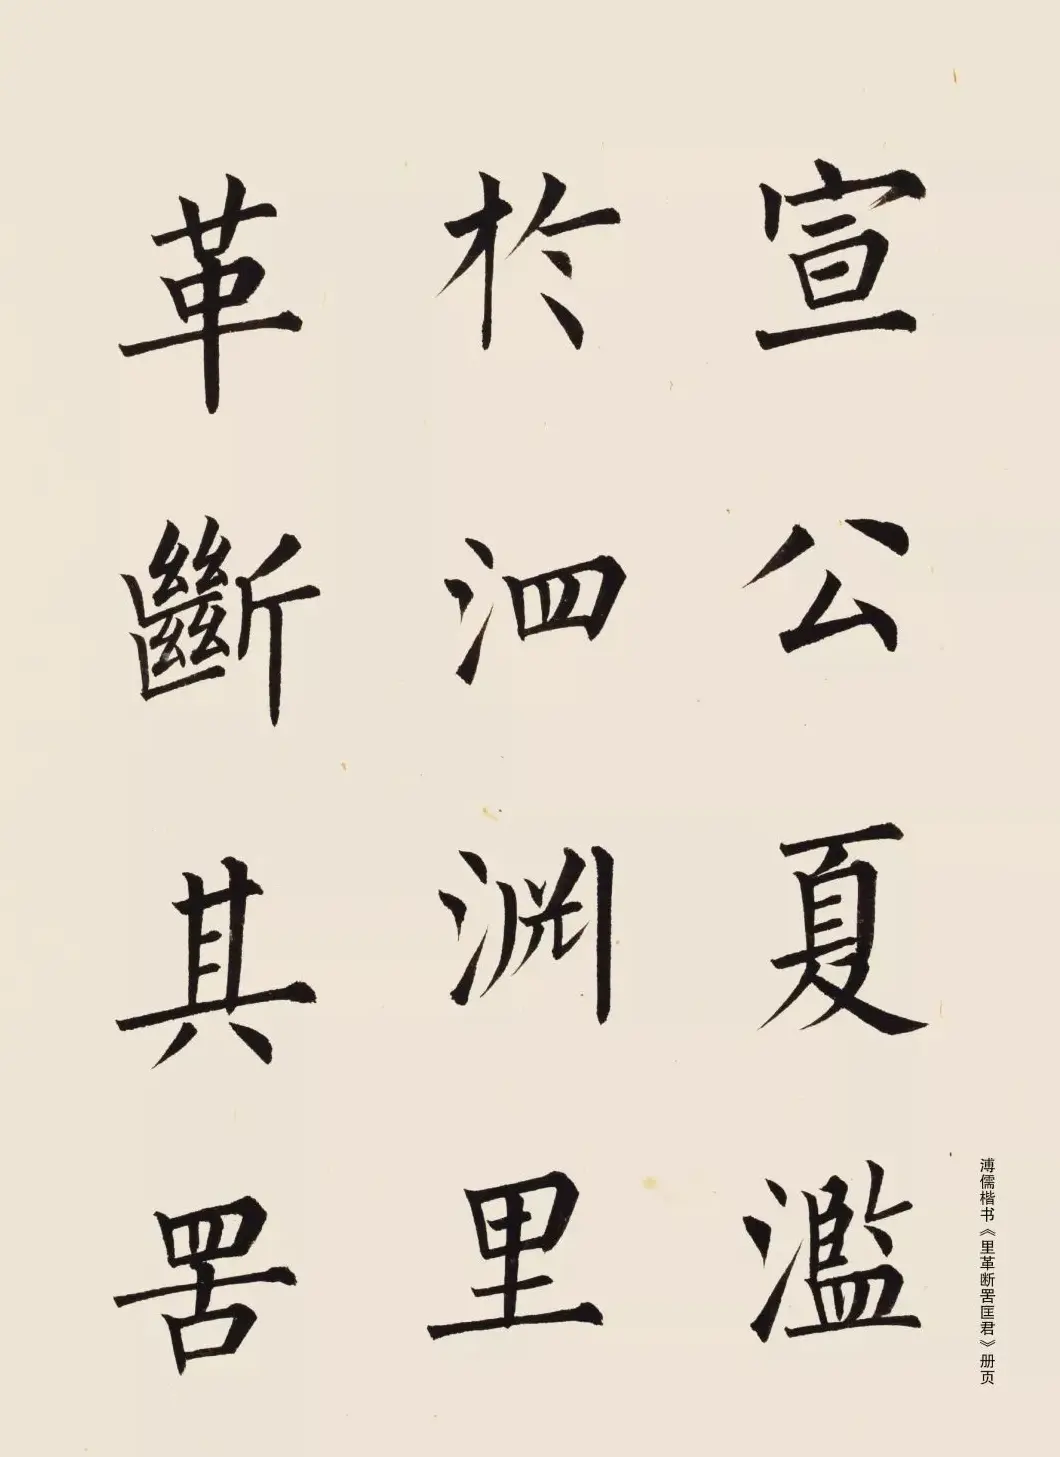 宣公夏濫
於泗淵里
革斷其罟
溥儒楷书《里革断罟匡君》册页